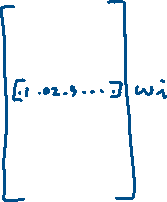 [ [.1 .02 .3 ... .] ] wi